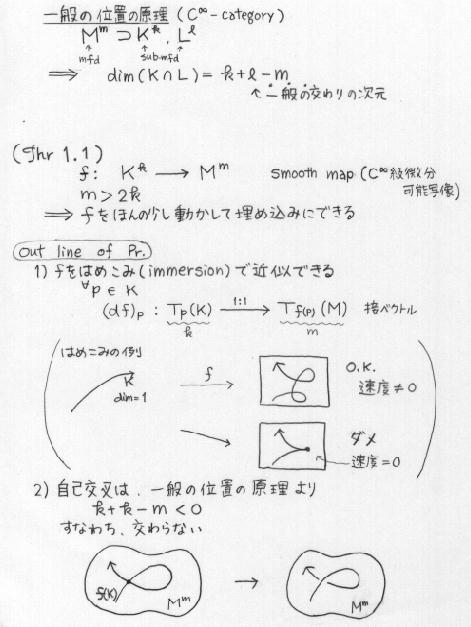 一般の位置の原理 (C∞-category)
Mᵐ ⊃ Kᵏ, Lˡ
mfd sub-mfd
⇒ dim(K∩L) = k+l-m
↖一般の交わりの次元
(Thr 1.1)
f: Kᵏ → Mᵐ smooth map (C∞級微分可能写像)
m > 2k
⇒ fをほんの少し動かして埋め込みにできる
Out line of Pr.
1) fをはめこみ(immersion)で近似できる
∀p ∈ K
(df)p : Tp(K) 1:1→ Tf(p)(M) 接ベクトル
k m
はめこみの例
K
dim=1
f
O.K.
速度≠0
ダメ
速度=0
2) 自己交叉は、一般の位置の原理より
k+k-m<0
すなわち、交わらない
f(K) Mᵐ → Mᵐ